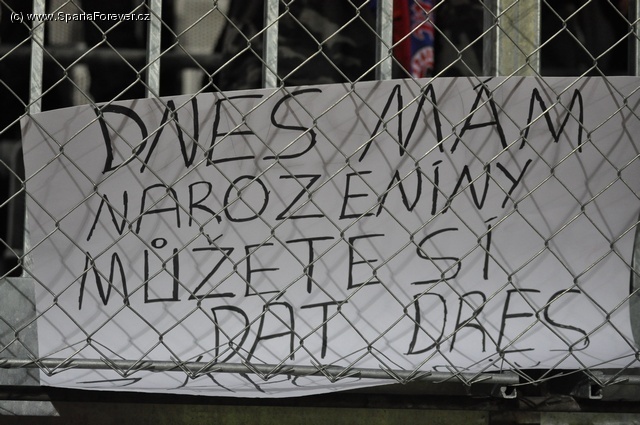 (c) www.SpartaForever.cz
DNES MÁM
NAROZENÍNY
MŮŽETE SÍ
DAT DRES